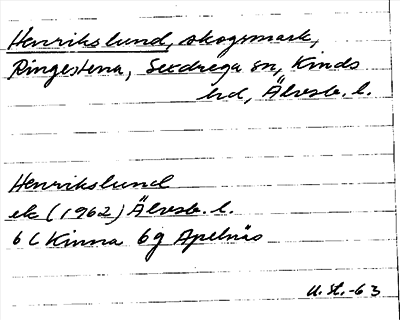 Henrikslund, skogsmark,
Ringestena, Sexdrega sn, Kinds
hd, Älvsb. l.
Henrikslund
ek (1962) Älvsb. l.
6 C Kinna 6 g Apelnäs
U. St. -63